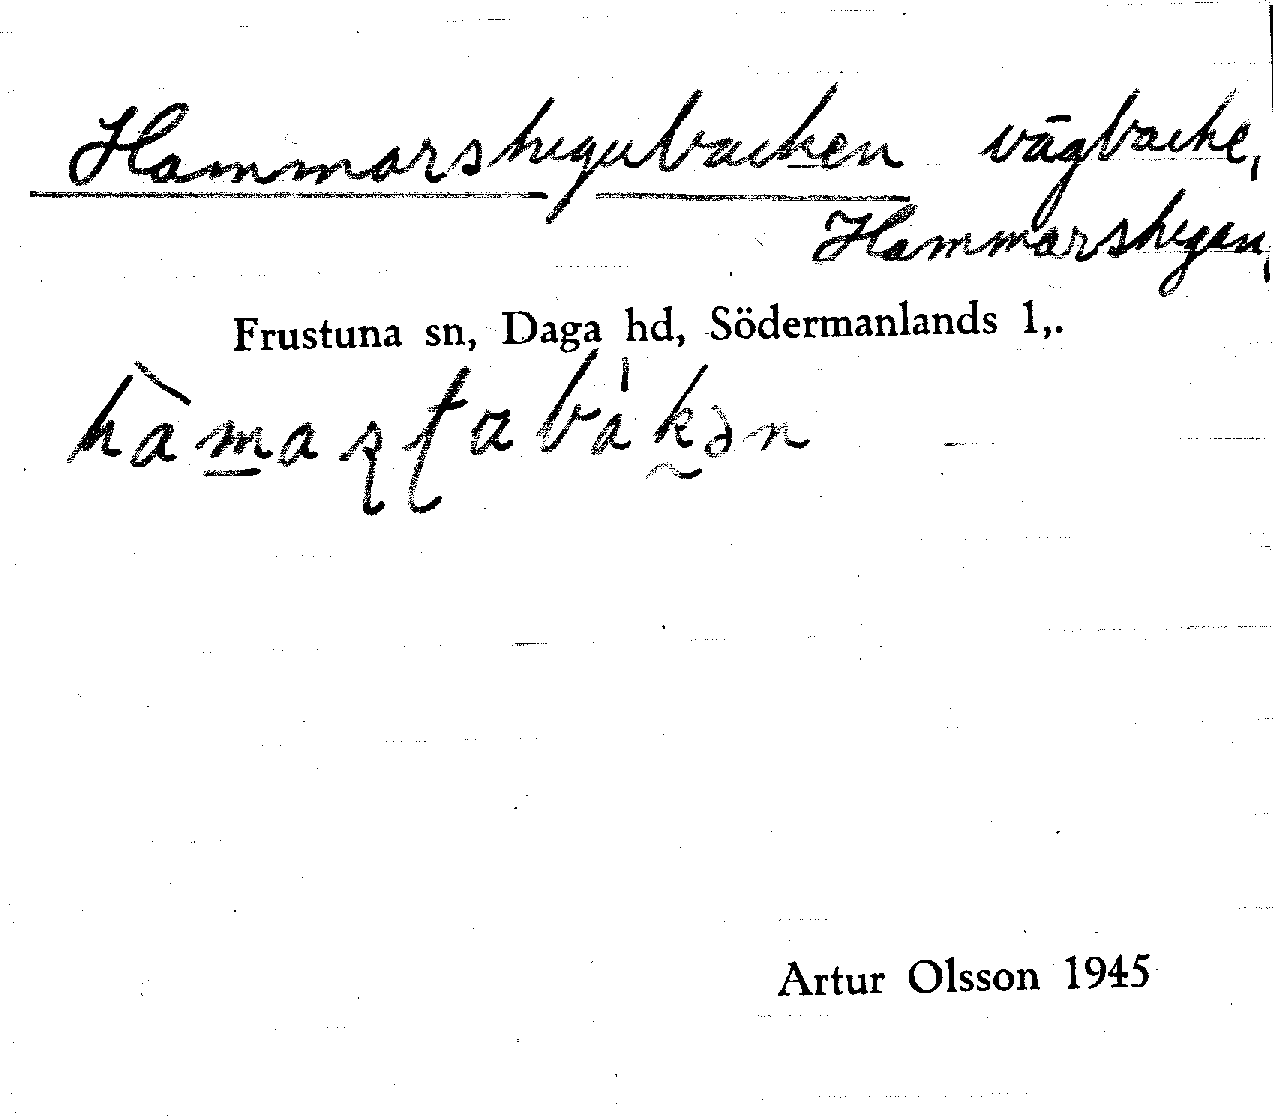 Hammarshegubacken vägbacke,
Hammarshegen,
Frustuna sn, Daga hd, Södermanlands l,.
Artur Olsson 1945